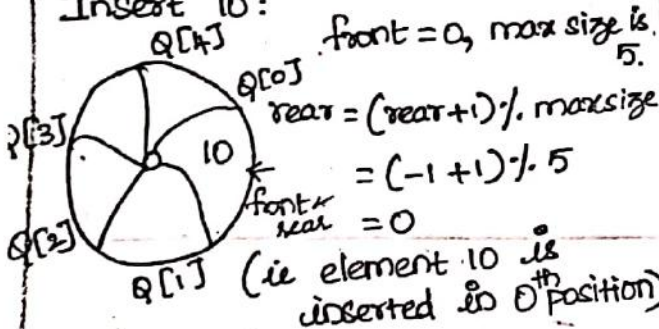 Insert 10:
Q[4]
front = 0, max size is 5.
Q[0]
rear = (rear+1)%. maxsize
Q[3]
10
= (-1 +1)%. 5
font &
rear
= 0
Q[2]
Q[1]
(ie element 10 is
inserted in 0th position)